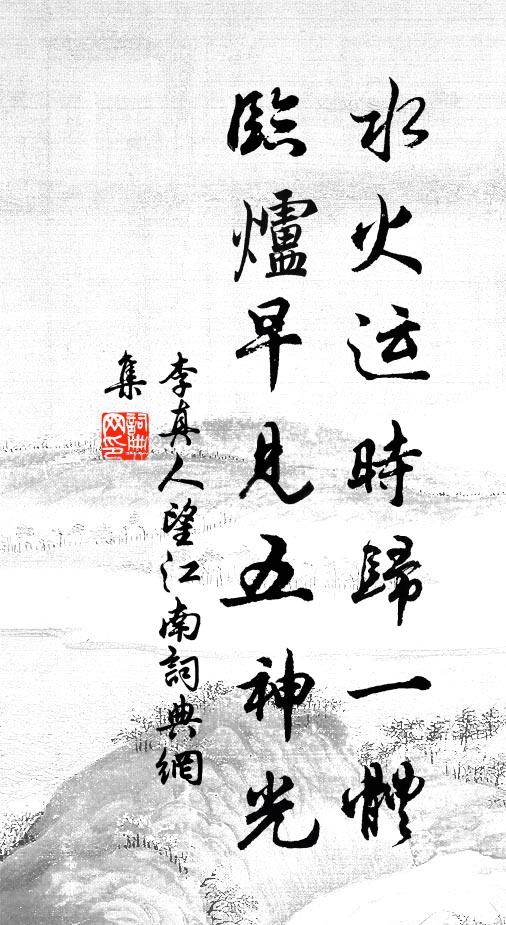 水火运時歸一體
臨爐早見五神光
李真人望江南詞典網
集
詞典
网印